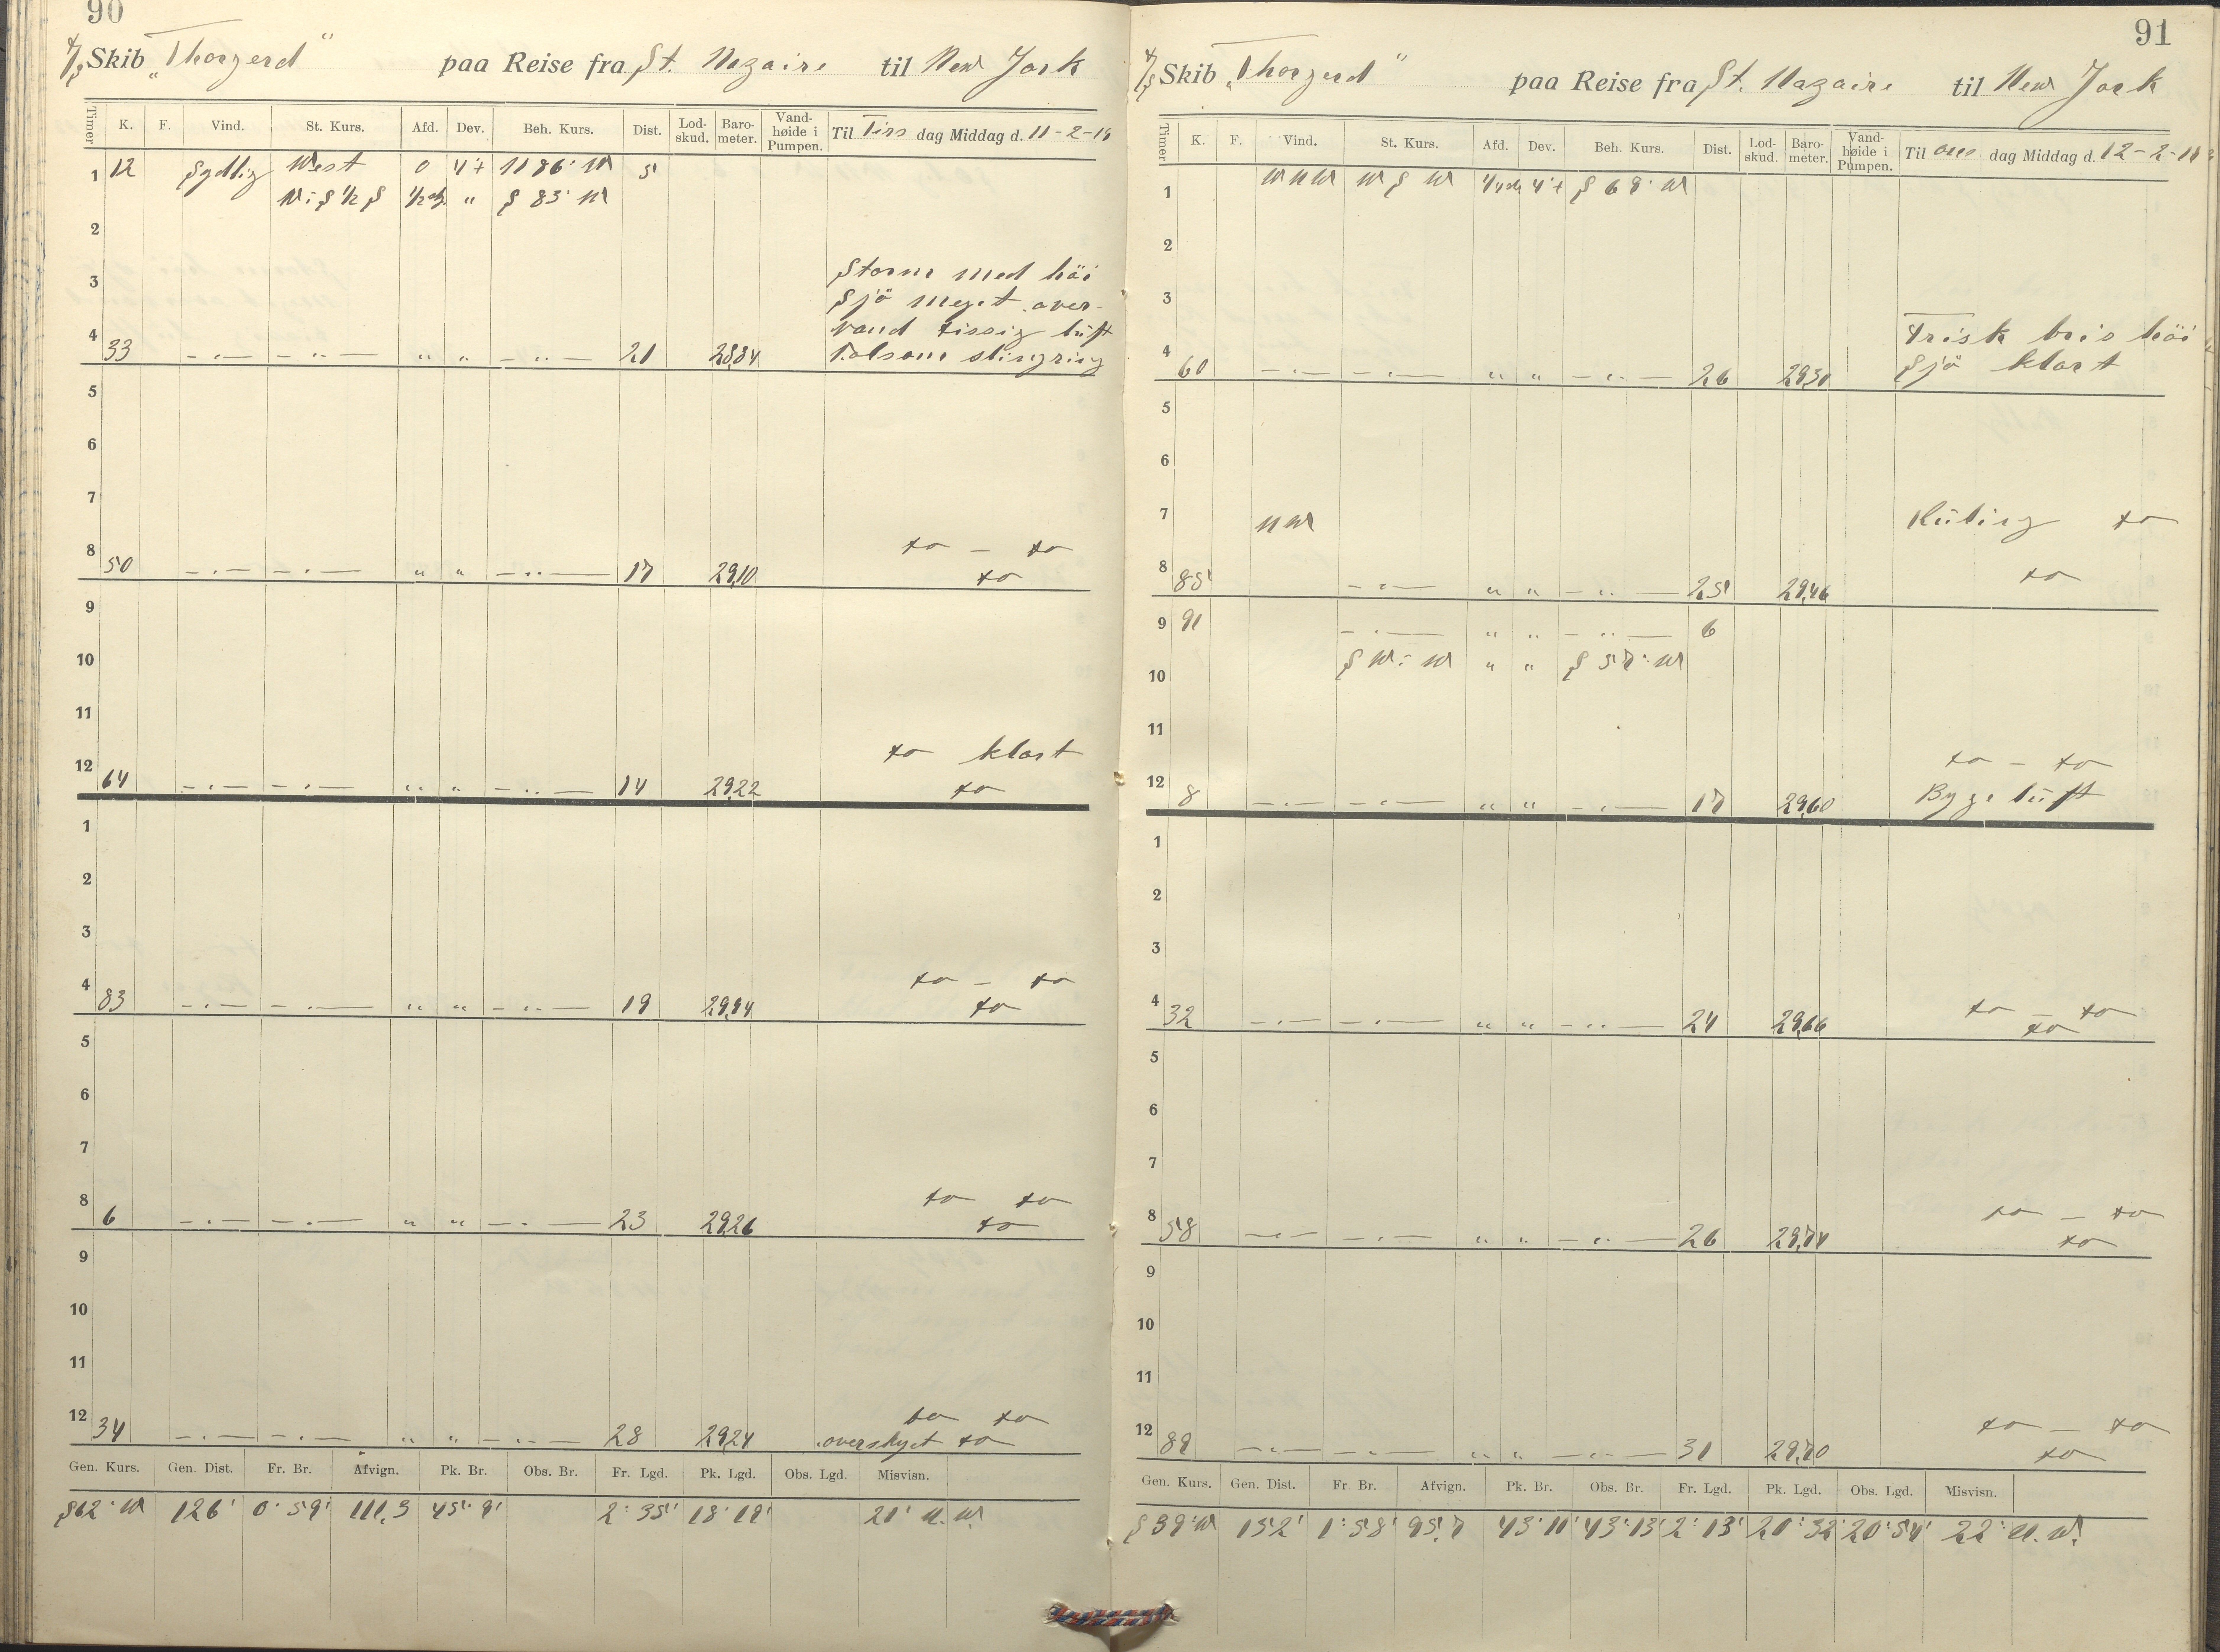 90
D/S Skib "Thorgerd" paa Reise fra St. Nazaire til New York
Timer K. F. Vind. St. Kurs. Afd. Dev. Beh. Kurs. Dist. Lod-skud. Baro-meter. Vand-høide i Pumpen. Til Tirs dag Middag d. 11-2-
1 12 Sydlig West 0 4°+ N 86° W 5
W:S ½ S ½ " S 83° W
2
3 Storm med höi
Sjö meget over-
4 vand Luft
33 -"- -"- " " -"- 21 28,84 slingring
5
6
7
8 do - do
50 -"- -"- " " -"- 17 29,10 do
9
10
11
12 do klart
64 -"- -"- " " -"- 14 29,22 do
1
2
3
4 do - do
83 -"- -"- " " -"- 19 do
5
6
7
8 do do
6 -"- -"- " " -"- 23 29,26 do
9
10
11
12 do do
34 -"- -"- " " -"- 28 29,24 overskyet do
Gen. Kurs. Gen. Dist. Fr. Br. Afvign. Pk. Br. Obs. Br. Fr. Lgd. Pk. Lgd. Obs. Lgd. Misvisn.
S 62° W 126' 0° 59' 111,3 45° 9' 2° 35' 18° 19' 21° N.W.
91
D/S Skib "Thorgerd" paa Reise fra St. Nazaire til New York
Timer K. F. Vind. St. Kurs. Afd. Dev. Beh. Kurs. Dist. Lod-skud. Baro-meter. Vand-høide i Pumpen. Til Ons dag Middag d. 12-2-
1 WNW WSW 4°+ S 68° W
2
3
4 Frisk bris höi
60 -"- -"- " " -"- 26 29,30 Sjö klart
5
6
7 NW Kuling do
8 do
85 -"- " " -"- 25 29,46
9 91 -"- " " -"- 6
10 SW:W " " S 57° W
11
12 do - do
8 -"- -"- " " -"- 17 29,60 Byge luft
1
2
3
4 do - do
32 -"- -"- " " -"- 24 29,66 do
5
6
7
8 do - do
58 -"- -"- " " -"- 26 29,74 do
9
10
11
12 do - do
89 -"- -"- " " -"- 31 29,70 do
Gen. Kurs. Gen. Dist. Fr. Br. Afvign. Pk. Br. Obs. Br. Fr. Lgd. Pk. Lgd. Obs. Lgd. Misvisn.
S 39° W 152' 1° 58' 95,7 43° 11' 43° 13' 2° 13' 20° 32' 20° 54' 22° N.W.